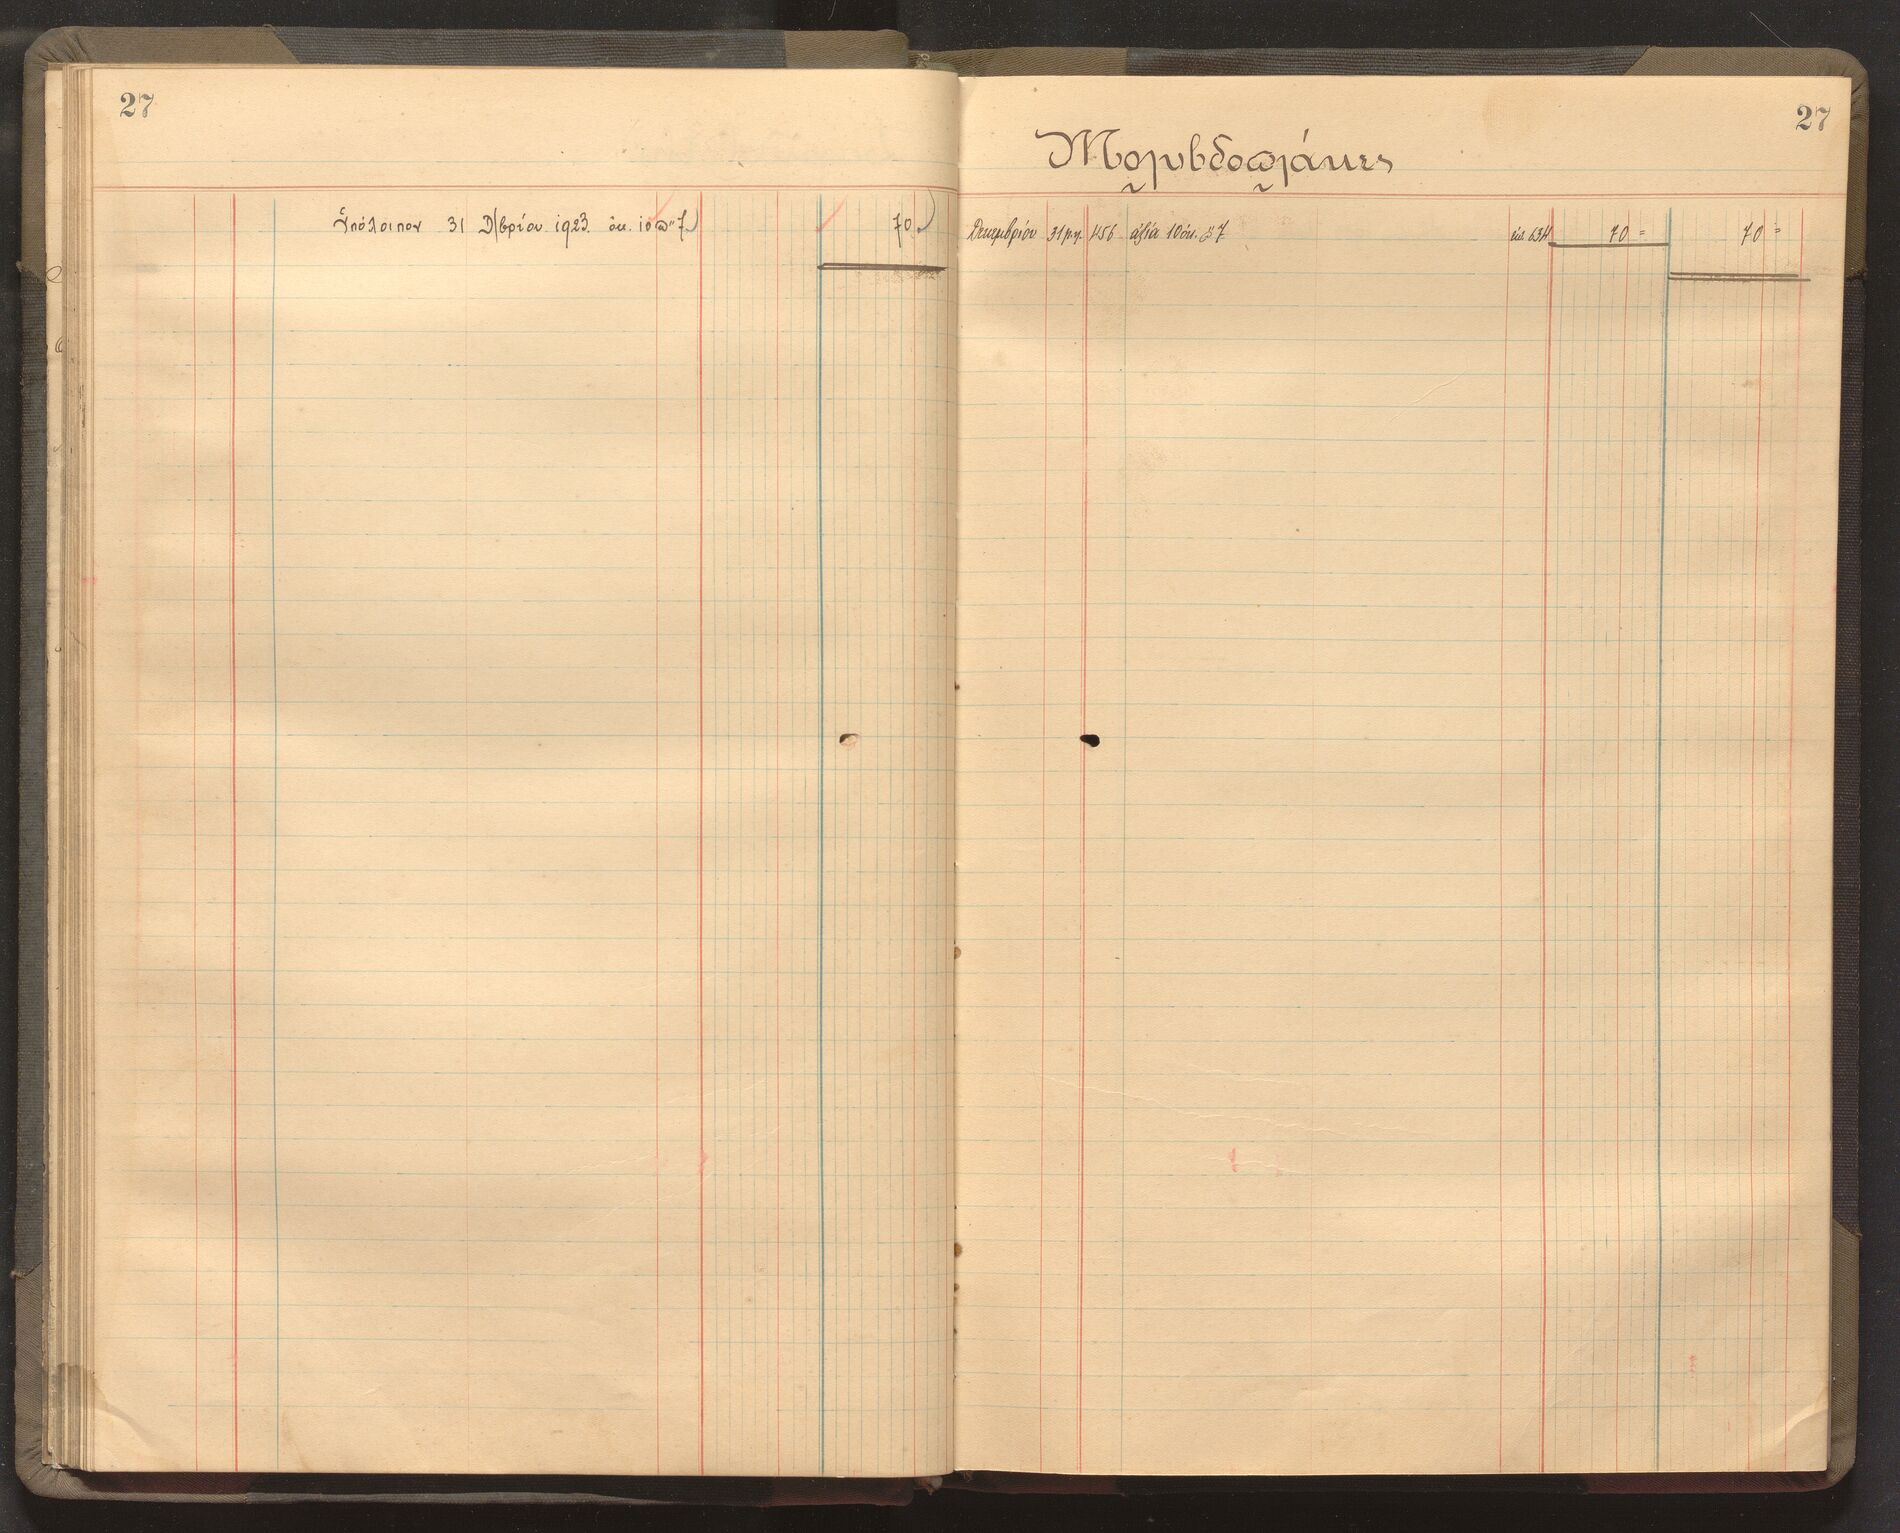 27
Ὑπόλοιπον 31 Δ/βρίου 1923 ὀκ. 10 π" 7 70
27
Μολυβδοπλάκες
Δεκεμβρίου 31 456 ἀξία 10 ὀκ. π" 7 634 70 = 70 =